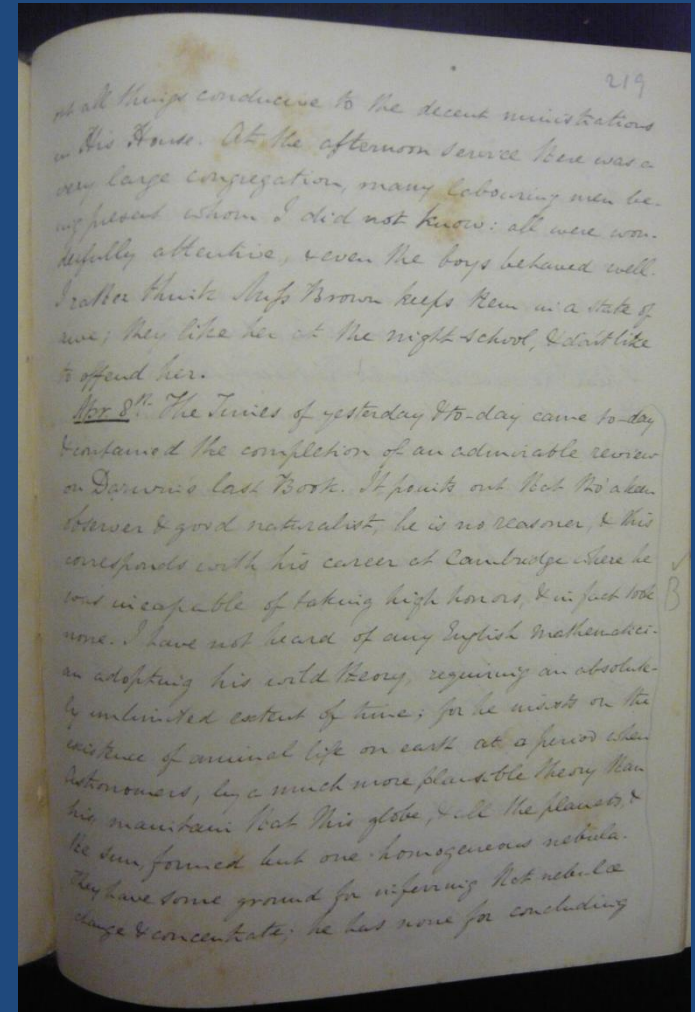 219
out all things conducive to the decent ministrations
in His House. At the afternoon service there was a
very large congregation, many labouring men be-
ing present whom I did not know: all were won-
derfully attentive, & even the boys behaved well.
I rather think Miss Brown keeps them in a state of
awe; they like her at the night school, & don't like
to offend her.
Apr. 8th. The Times of yesterday & to-day came to-day
& contained the completion of an admirable review
on Darwin's last Book. It points out that tho' a keen
observer & good naturalist, he is no reasoner, & this
corresponds with his career at Cambridge where he
was incapable of taking high honors, & in fact took
none. I have not heard of any English Mathematici-
an adopting his wild theory, requiring an absolute-
ly unlimited extent of time; for he insists on the
existence of animal life on earth at a period when
Astronomers, by a much more plausible theory than
his, maintain that this globe, & all the planets, &
the sun, formed but one homogeneous nebula.
They have some ground for inferring that nebulæ
change & concentrate; he has none for concluding
B